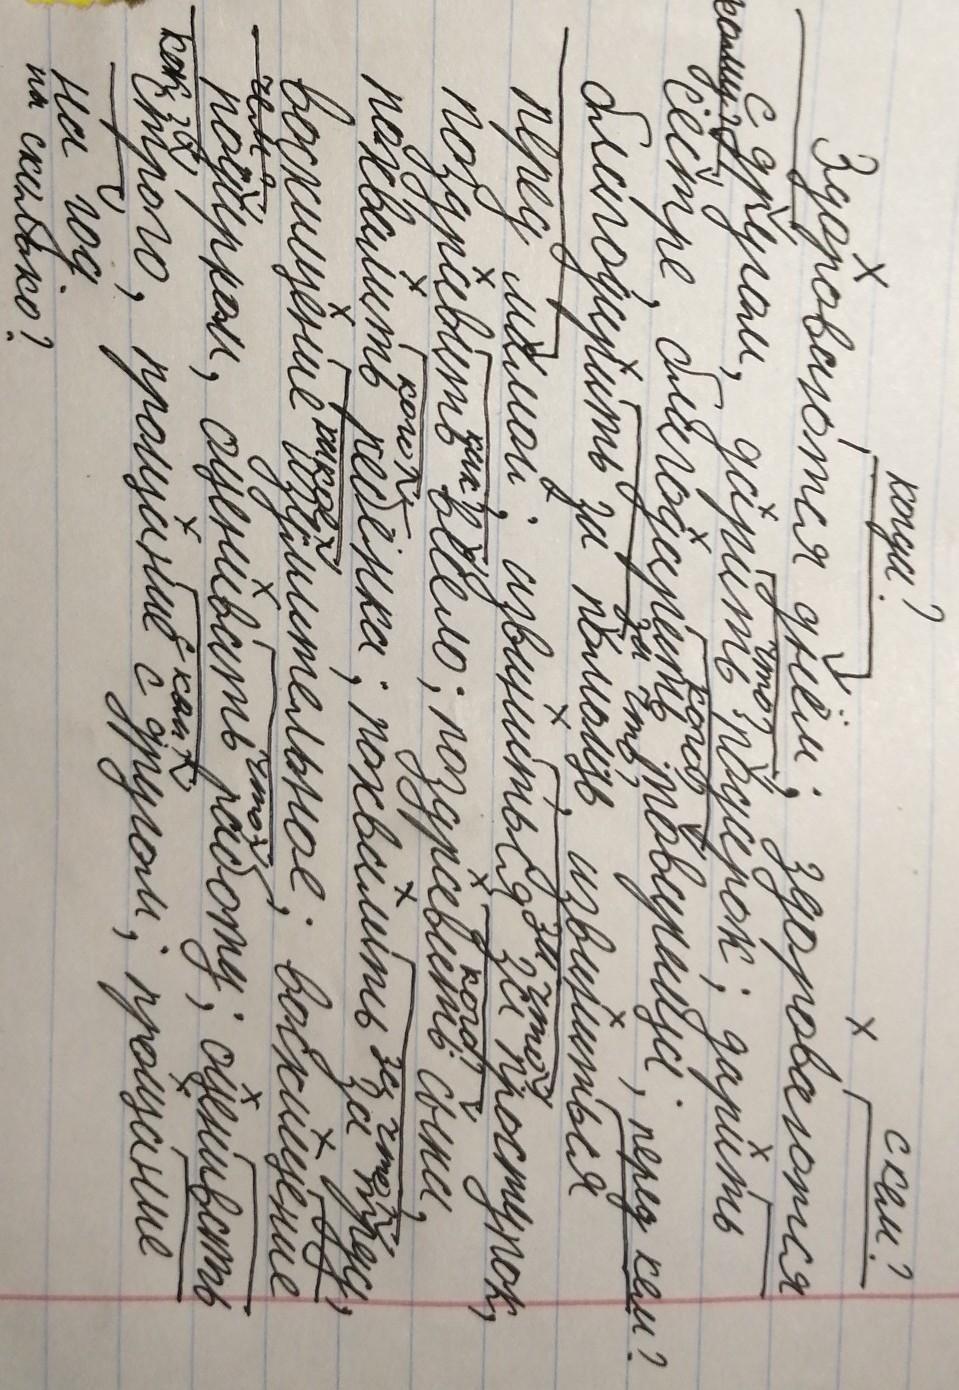 когда? с кем?
Здороваются днём; здороваются
с другом, дарить подарок; дарить
что?
кому?
сестре, благодарить товарища;
кого?
благодарить за помощь, извиниться
за что? перед кем?
перед мамой; извиниться за проступок,
за что?
поздравить весело; поздравить сына,
как? кого?
похвалить ребёнка; похвалить за труд,
кого? за что?
восхищение удивительное; восхищение
какое?
чем?
подарком, оценивать работу; оценивать
что?
как?
строго, прощание с другом; прощание
с кем?
на год.
на сколько?